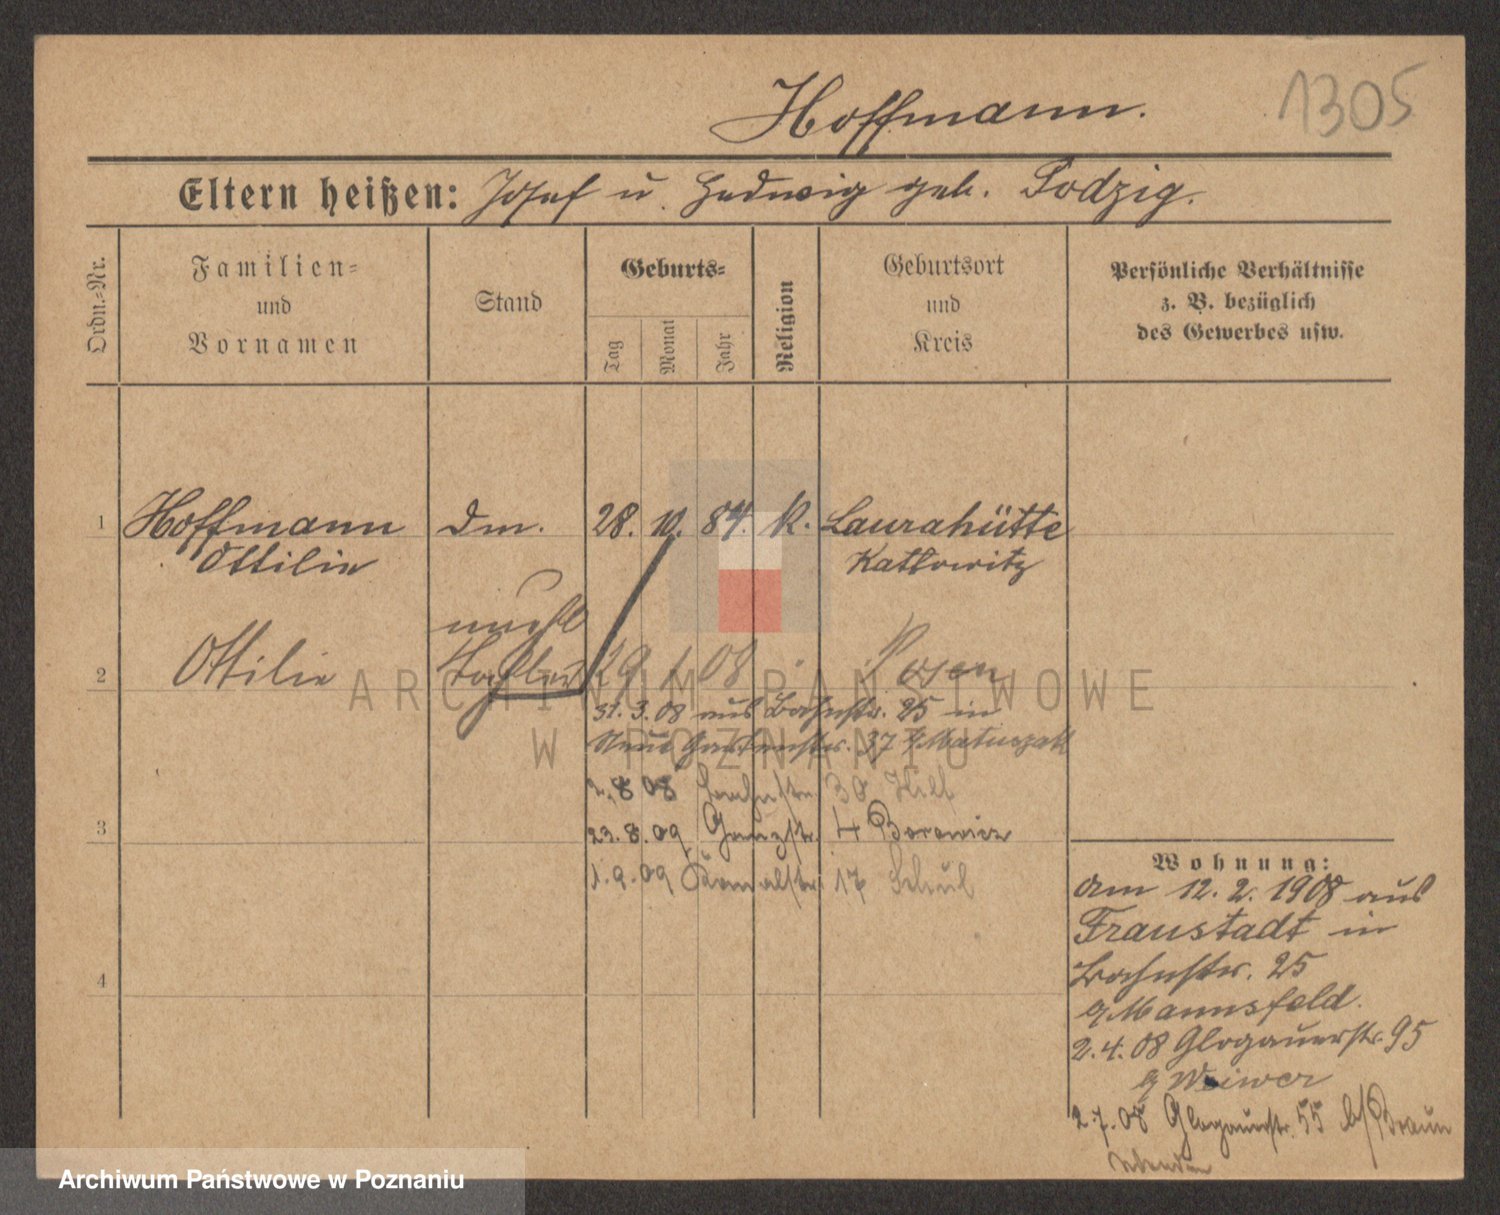 1305
Hoffmann.
Eltern heißen: Josef u. Hedwig geb. Podzig.
Ordn.-Nr.
Familien- und Vornamen
Stand
Geburts-
Tag
Monat
Jahr
Religion
Geburtsort und Kreis
Persönliche Verhältnisse
z. B. bezüglich
des Gewerbes usw.
1 Hoffmann Dm. 28. 10. 84. K. Laurahütte
Ottilie Kattowitz
unehl
2 Ottilie Tochter 29 1 08 Posen
31. 3. 08 aus Bahnstr. 25 in
Neue Gartenstr. 37 b/Matuszak
2. 8 08 30
3 23. 8. 09 4 Borowicz
1. 9. 09 Kanalstr. 17
4
Wohnung:
am 12. 2. 1908 aus
Fraustadt in
Bahnstr. 25
b/Mannsfeld.
2. 4. 08 Glogauerstr. 95
b/ Weiwer
2. 7. 08 Glogauerstr. 55 b/Braun
ARCHIWUM PAŃSTWOWE
W POZNANIU
Archiwum Państwowe w Poznaniu